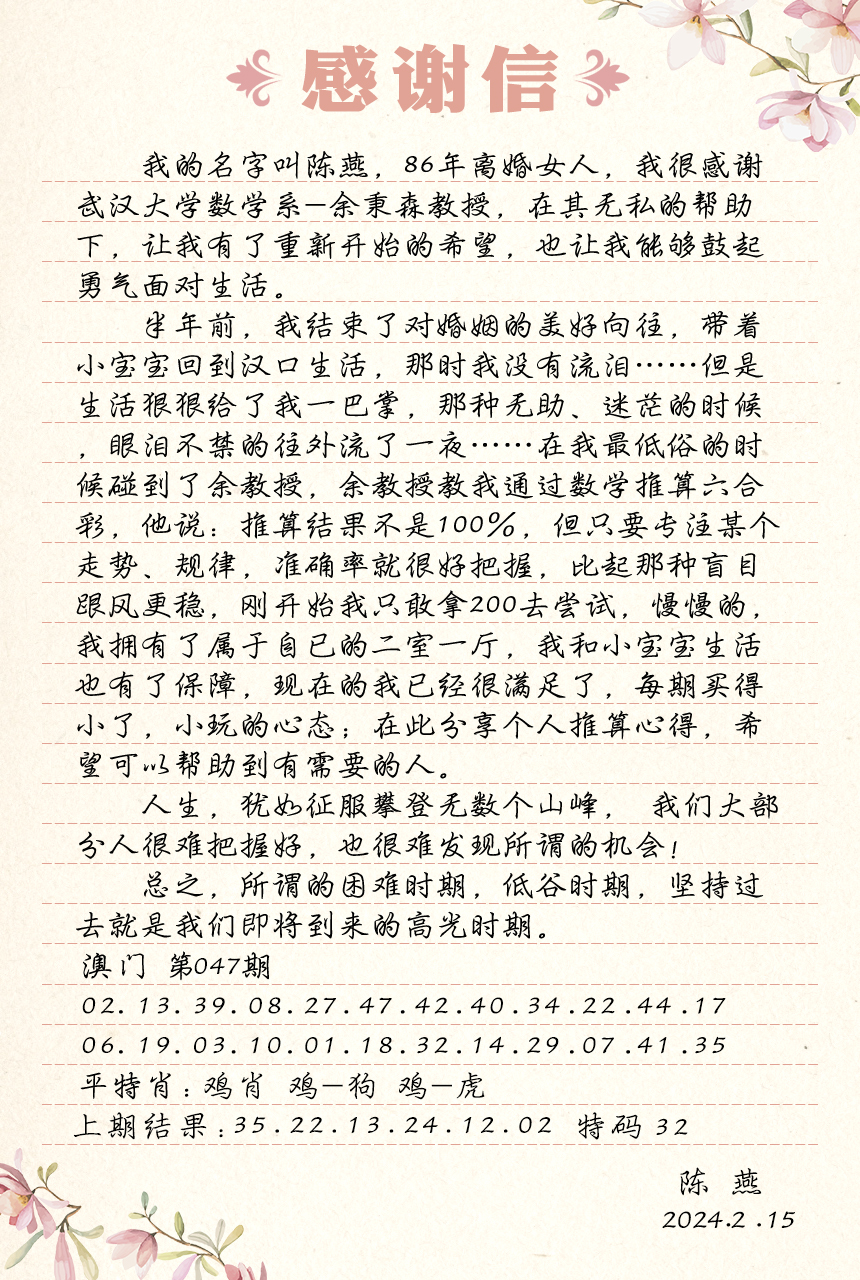 感谢信
我的名字叫陈燕，86年离婚女人，我很感谢
武汉大学数学系—余秉森教授，在其无私的帮助
下，让我有了重新开始的希望，也让我能够鼓起
勇气面对生活。
半年前，我结束了对婚姻的美好向往，带着
小宝宝回到汉口生活，那时我没有流泪……但是
生活狠狠给了我一巴掌，那种无助、迷茫的时候
，眼泪不禁的往外流了一夜……在我最低俗的时
候碰到了余教授，余教授教我通过数学推算六合
彩，他说：推算结果不是100%，但只要专注某个
走势、规律，准确率就很好把握，比起那种盲目
跟风更稳，刚开始我只敢拿200去尝试，慢慢的，
我拥有了属于自已的二室一厅，我和小宝宝生活
也有了保障，现在的我已经很满足了，每期买得
小了，小玩的心态；在此分享个人推算心得，希
望可以帮助到有需要的人。
人生，犹如征服攀登无数个山峰， 我们大部
分人很难把握好，也很难发现所谓的机会！
总之，所谓的困难时期，低谷时期，坚持过
去就是我们即将到来的高光时期。
澳门 第047期
02.13.39.08.27.47.42.40.34.22.44.17
06.19.03.10.01.18.32.14.29.07.41.35
平特肖：鸡肖 鸡—狗 鸡—虎
上期结果：35.22.13.24.12.02 特码 32
陈 燕
2024.2.15